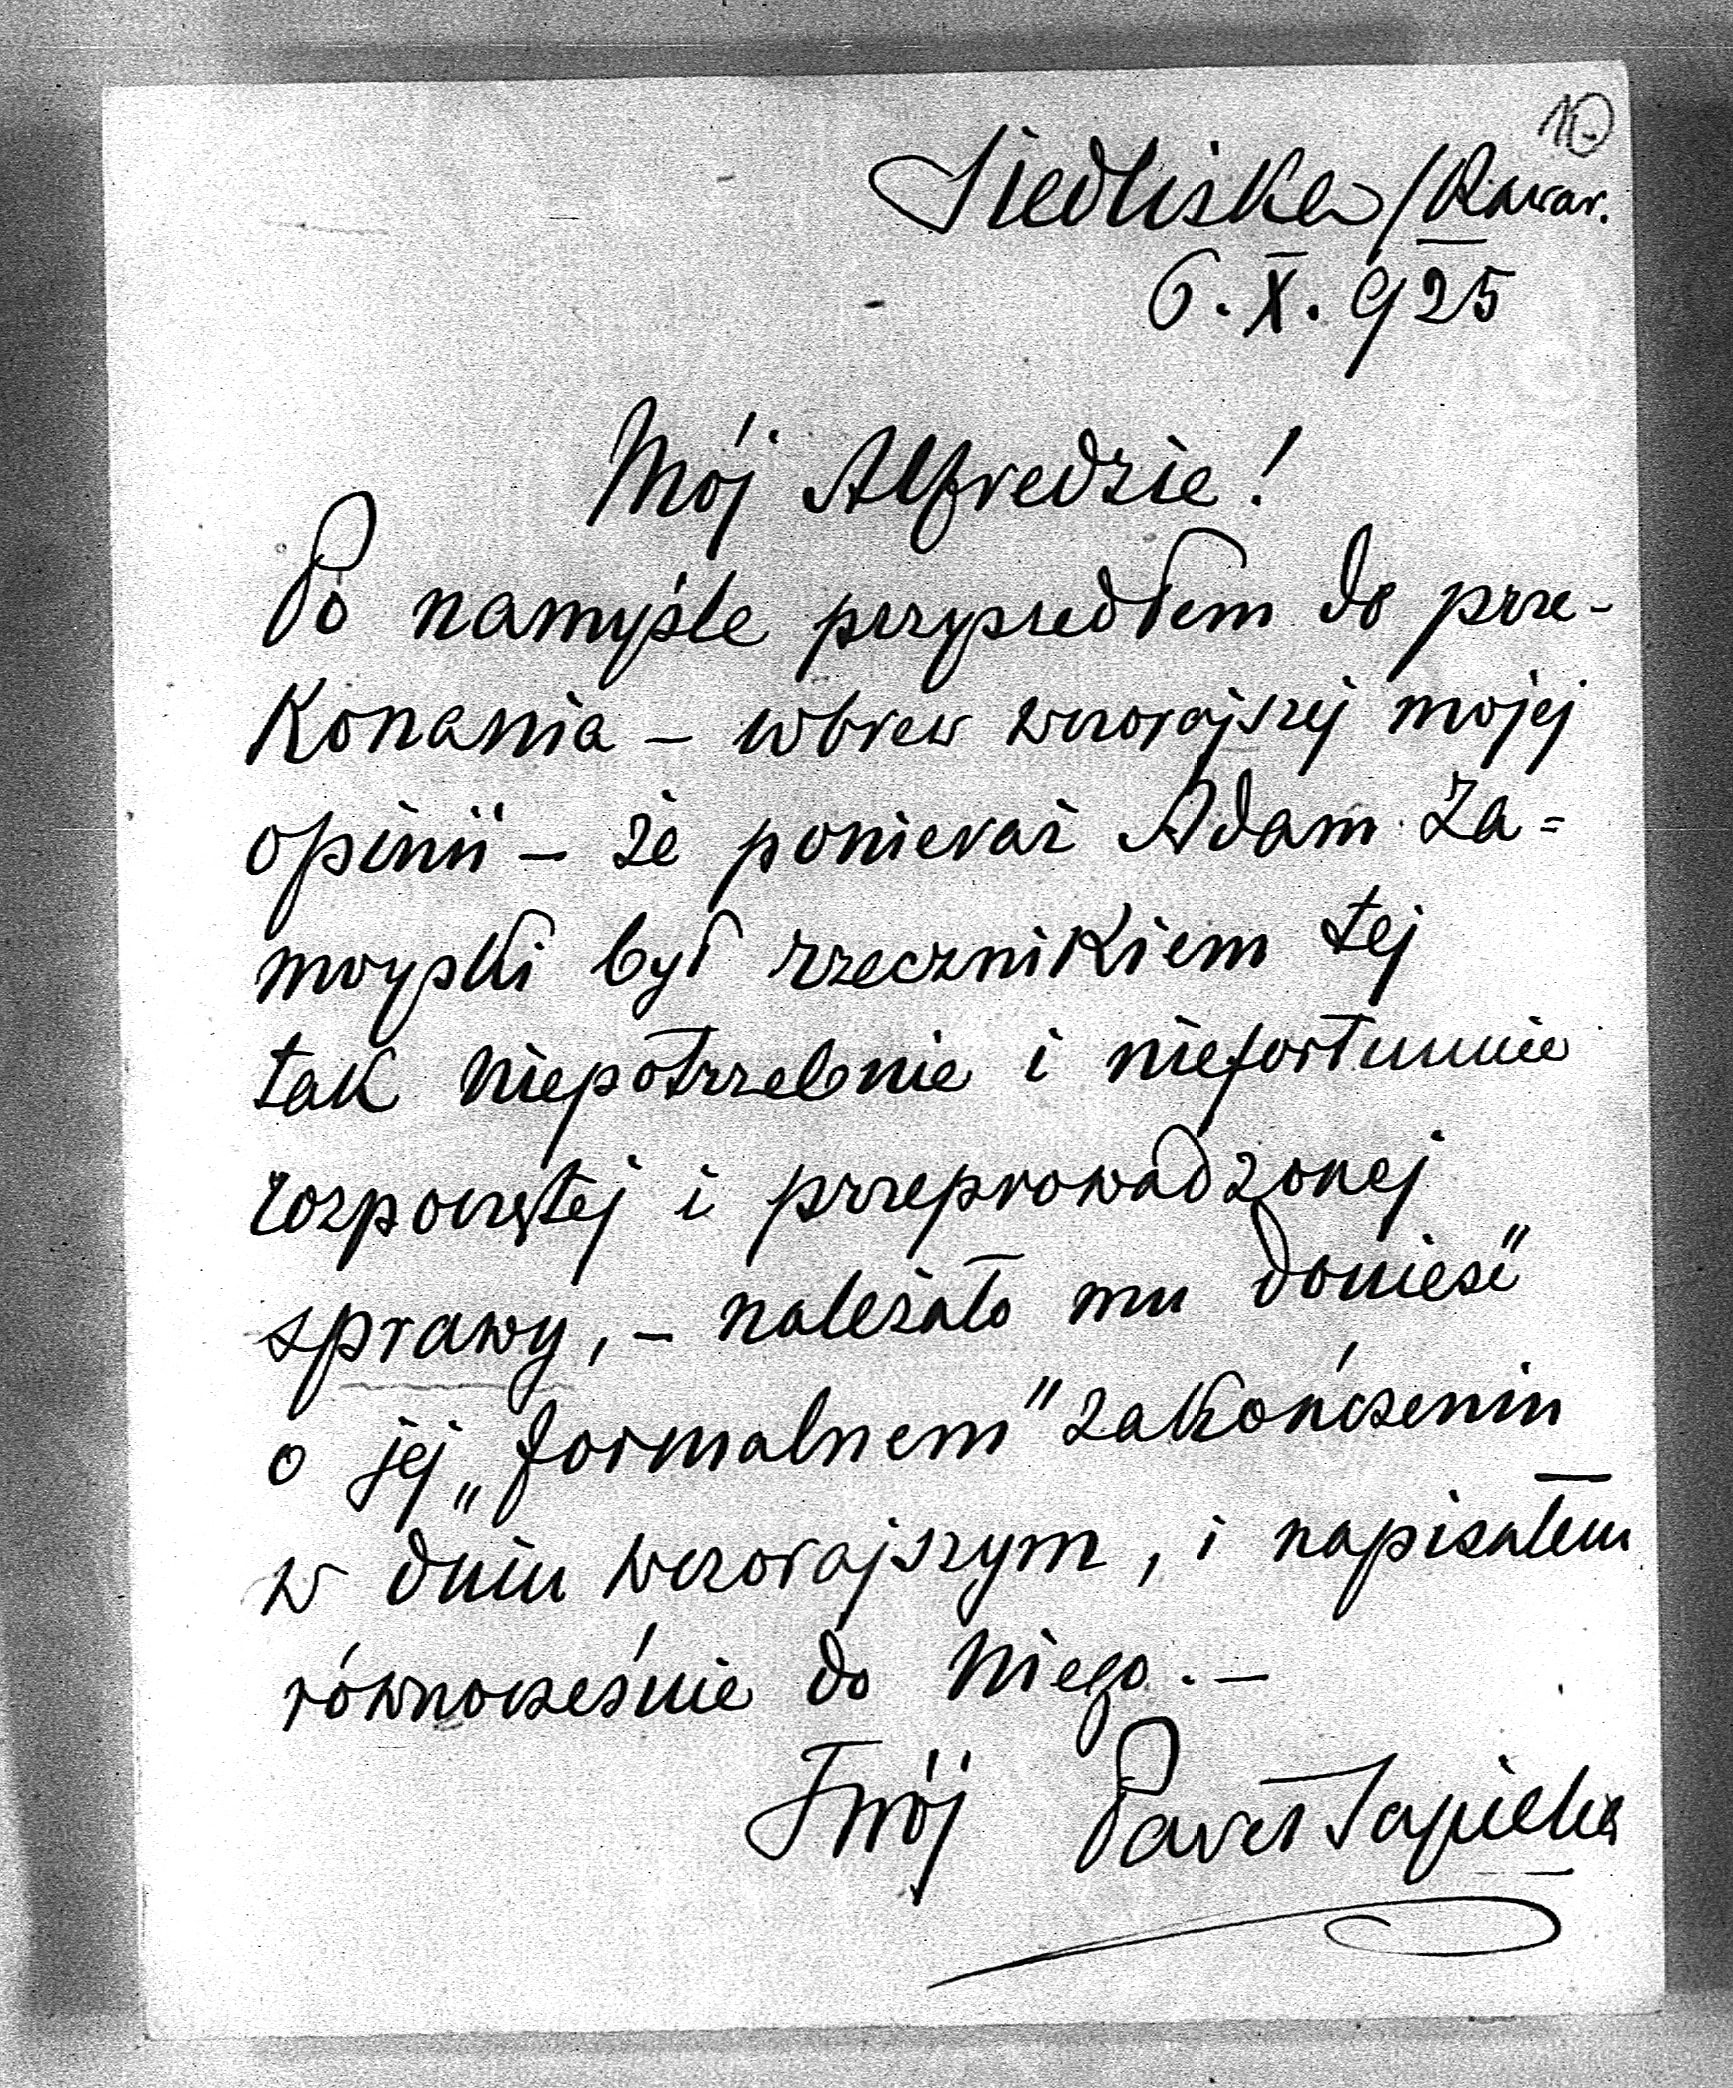 10
Siedliska/Rawar.
6. X. 925
Mój Alfredzie!
Po namyśle przyszedłem do prze-
konania – wbrew wczorajszej mojej
opinii – że ponieważ Adam Za=
moyski był rzecznikiem tej
tak niepotrzebnie i niefortunnie
rozpoczętej i przeprowadzonej
sprawy, – należało mu donieść
o jej „formalnem" zakończeniu
w dniu wczorajszym, i napisałem
równocześnie do Niego. –
Twój Paweł Sapieha